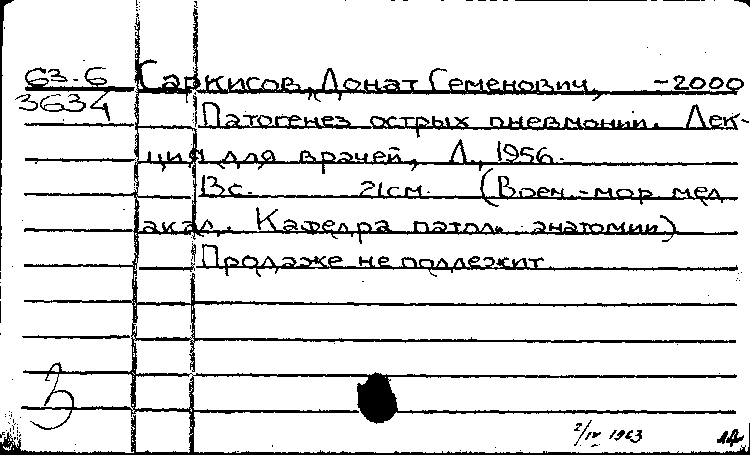 63-6 Саркисов, Донат Семенович, -2000
3634 Патогенез острых пневмоний. Лек-
ция для врачей, Л., 1956.
13 с. 21 см. (Воен.-мор. мед.
акад. Кафедра патол. анатомии)
Продаже не подлежит
З
2/IV 1963